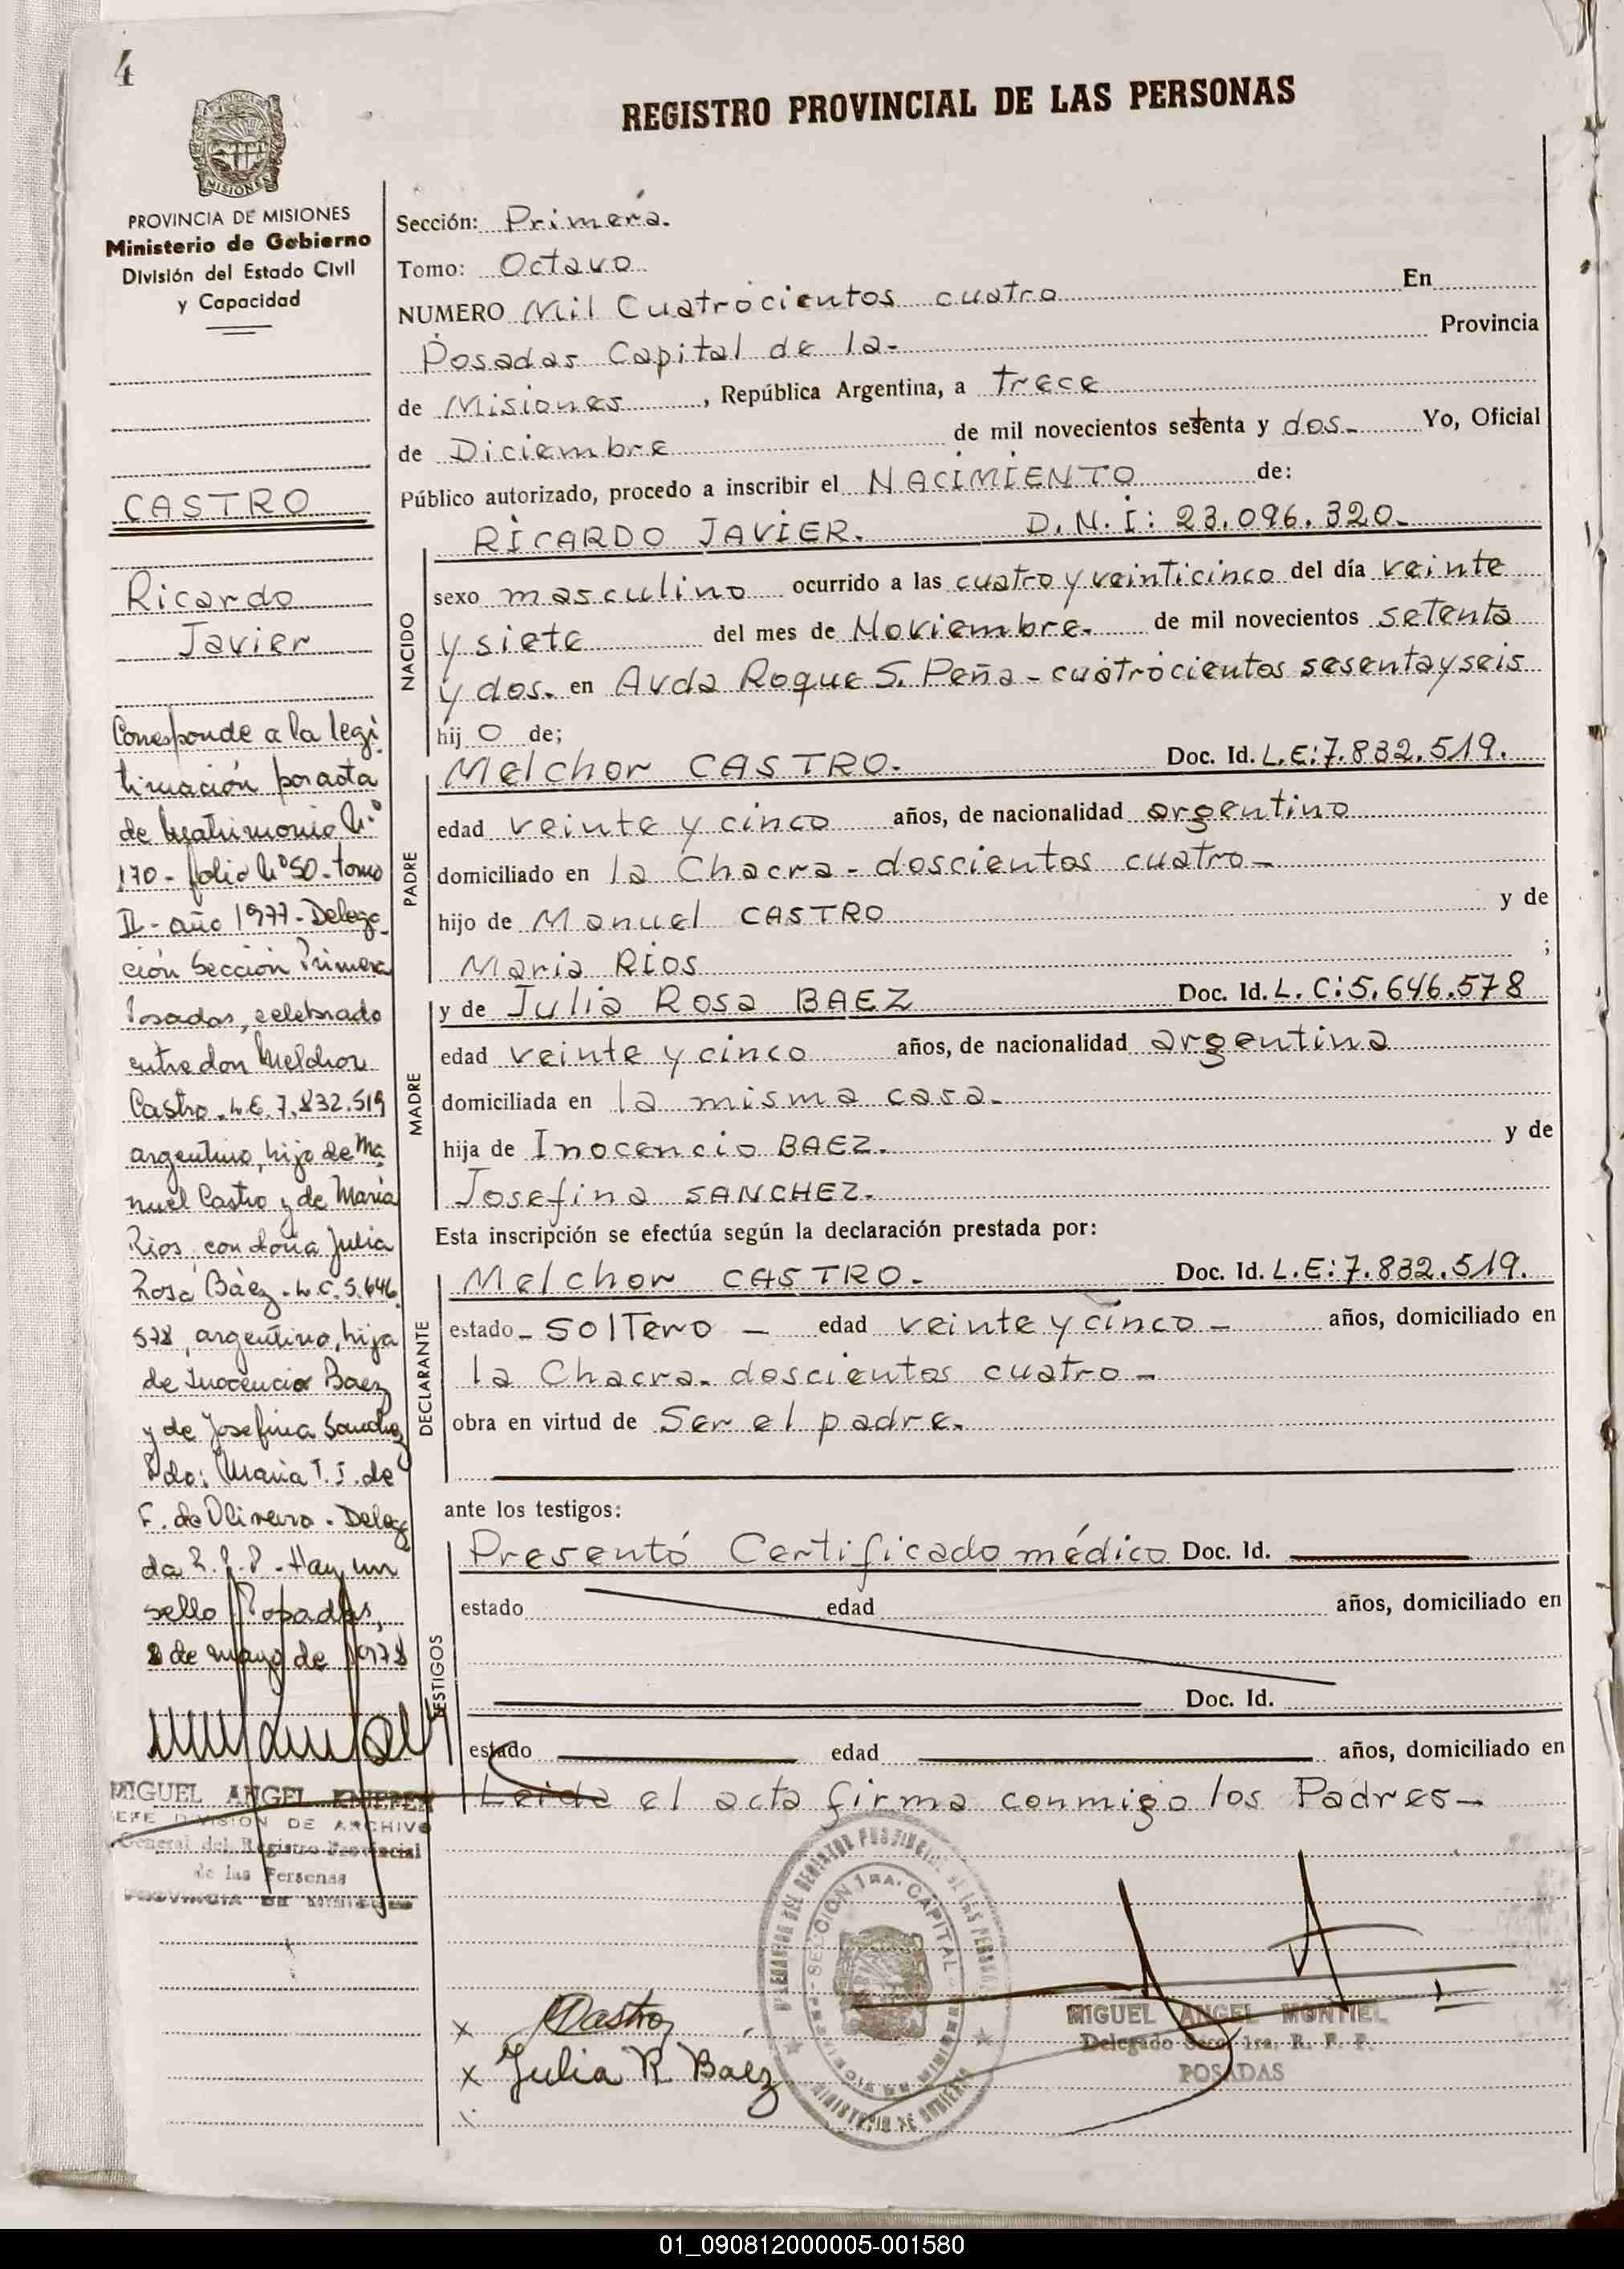 4
REGISTRO PROVINCIAL DE LAS PERSONAS
MISIONES
PROVINCIA DE MISIONES
Ministerio de Gobierno
División del Estado Civil
y Capacidad
CASTRO
Ricardo
Javier
Corresponde a la legi
timación por acta
de Matrimonio Nº
170 - folio Nº 50 - tomo
II - año 1977 - Delega
ción Sección Primera
Posadas, celebrado
entre don Melchor
Castro - L.E. 7.832.519
argentino, hijo de Ma
nuel Castro y de María
Rios, con doña Julia
Rosa Báez - L.C. 5.646.
578, argentina, hija
de Inocencio Baez
y de Josefina Sanchez
Fdo: Maria T. J. de
F. de Olivera - Delega
da R.P.P - Hay un
sello Posadas,
2 de mayo de 1978
MIGUEL ANGEL
JEFE DIVISION DE ARCHIVO
General del Registro Provincial
de las Personas
PROVINCIA DE MISIONES
Sección: Primera.
Tomo: Octavo
NUMERO Mil Cuatrocientos cuatro En
Posadas Capital de la- Provincia
de Misiones , República Argentina, a trece
de Diciembre de mil novecientos setenta y dos- Yo, Oficial
Público autorizado, procedo a inscribir el NACIMIENTO de:
RICARDO JAVIER. D.N.I: 23.096.320-
NACIDO
sexo masculino ocurrido a las cuatro y veinticinco del día veinte
y siete del mes de Noviembre- de mil novecientos setenta
y dos- en Avda Roque S. Peña - cuatrocientos sesenta y seis
hij o de;
PADRE
Melchor CASTRO- Doc. Id. L.E: 7.832.519.
edad veinte y cinco años, de nacionalidad argentino
domiciliado en la Chacra - doscientos cuatro -
hijo de Manuel CASTRO y de
Maria RIOS ;
MADRE
y de Julia Rosa BAEZ Doc. Id. L. C: 5.646.578
edad veinte y cinco años, de nacionalidad argentina
domiciliada en la misma casa-
hija de Inocencio BAEZ- y de
Josefina SANCHEZ-
Esta inscripción se efectúa según la declaración prestada por:
DECLARANTE
Melchor CASTRO- Doc. Id. L.E: 7.832.519.
estado - SOlTero - edad veinte y cinco - años, domiciliado en
la Chacra- doscientos cuatro -
obra en virtud de Ser el padre-
ante los testigos:
TESTIGOS
Presentó Certificado médico Doc. Id.
estado edad años, domiciliado en
Doc. Id.
estado edad años, domiciliado en
Leida el acta firma conmigo los Padres-
SECCION 1RA. CAPITAL
MINISTERIO DE GOBIERNO
x Castro
x Julia R Baez
MIGUEL ANGEL MONTIEL
Delegado Secc. 1ra. R. P. P.
POSADAS
01_090812000005-001580